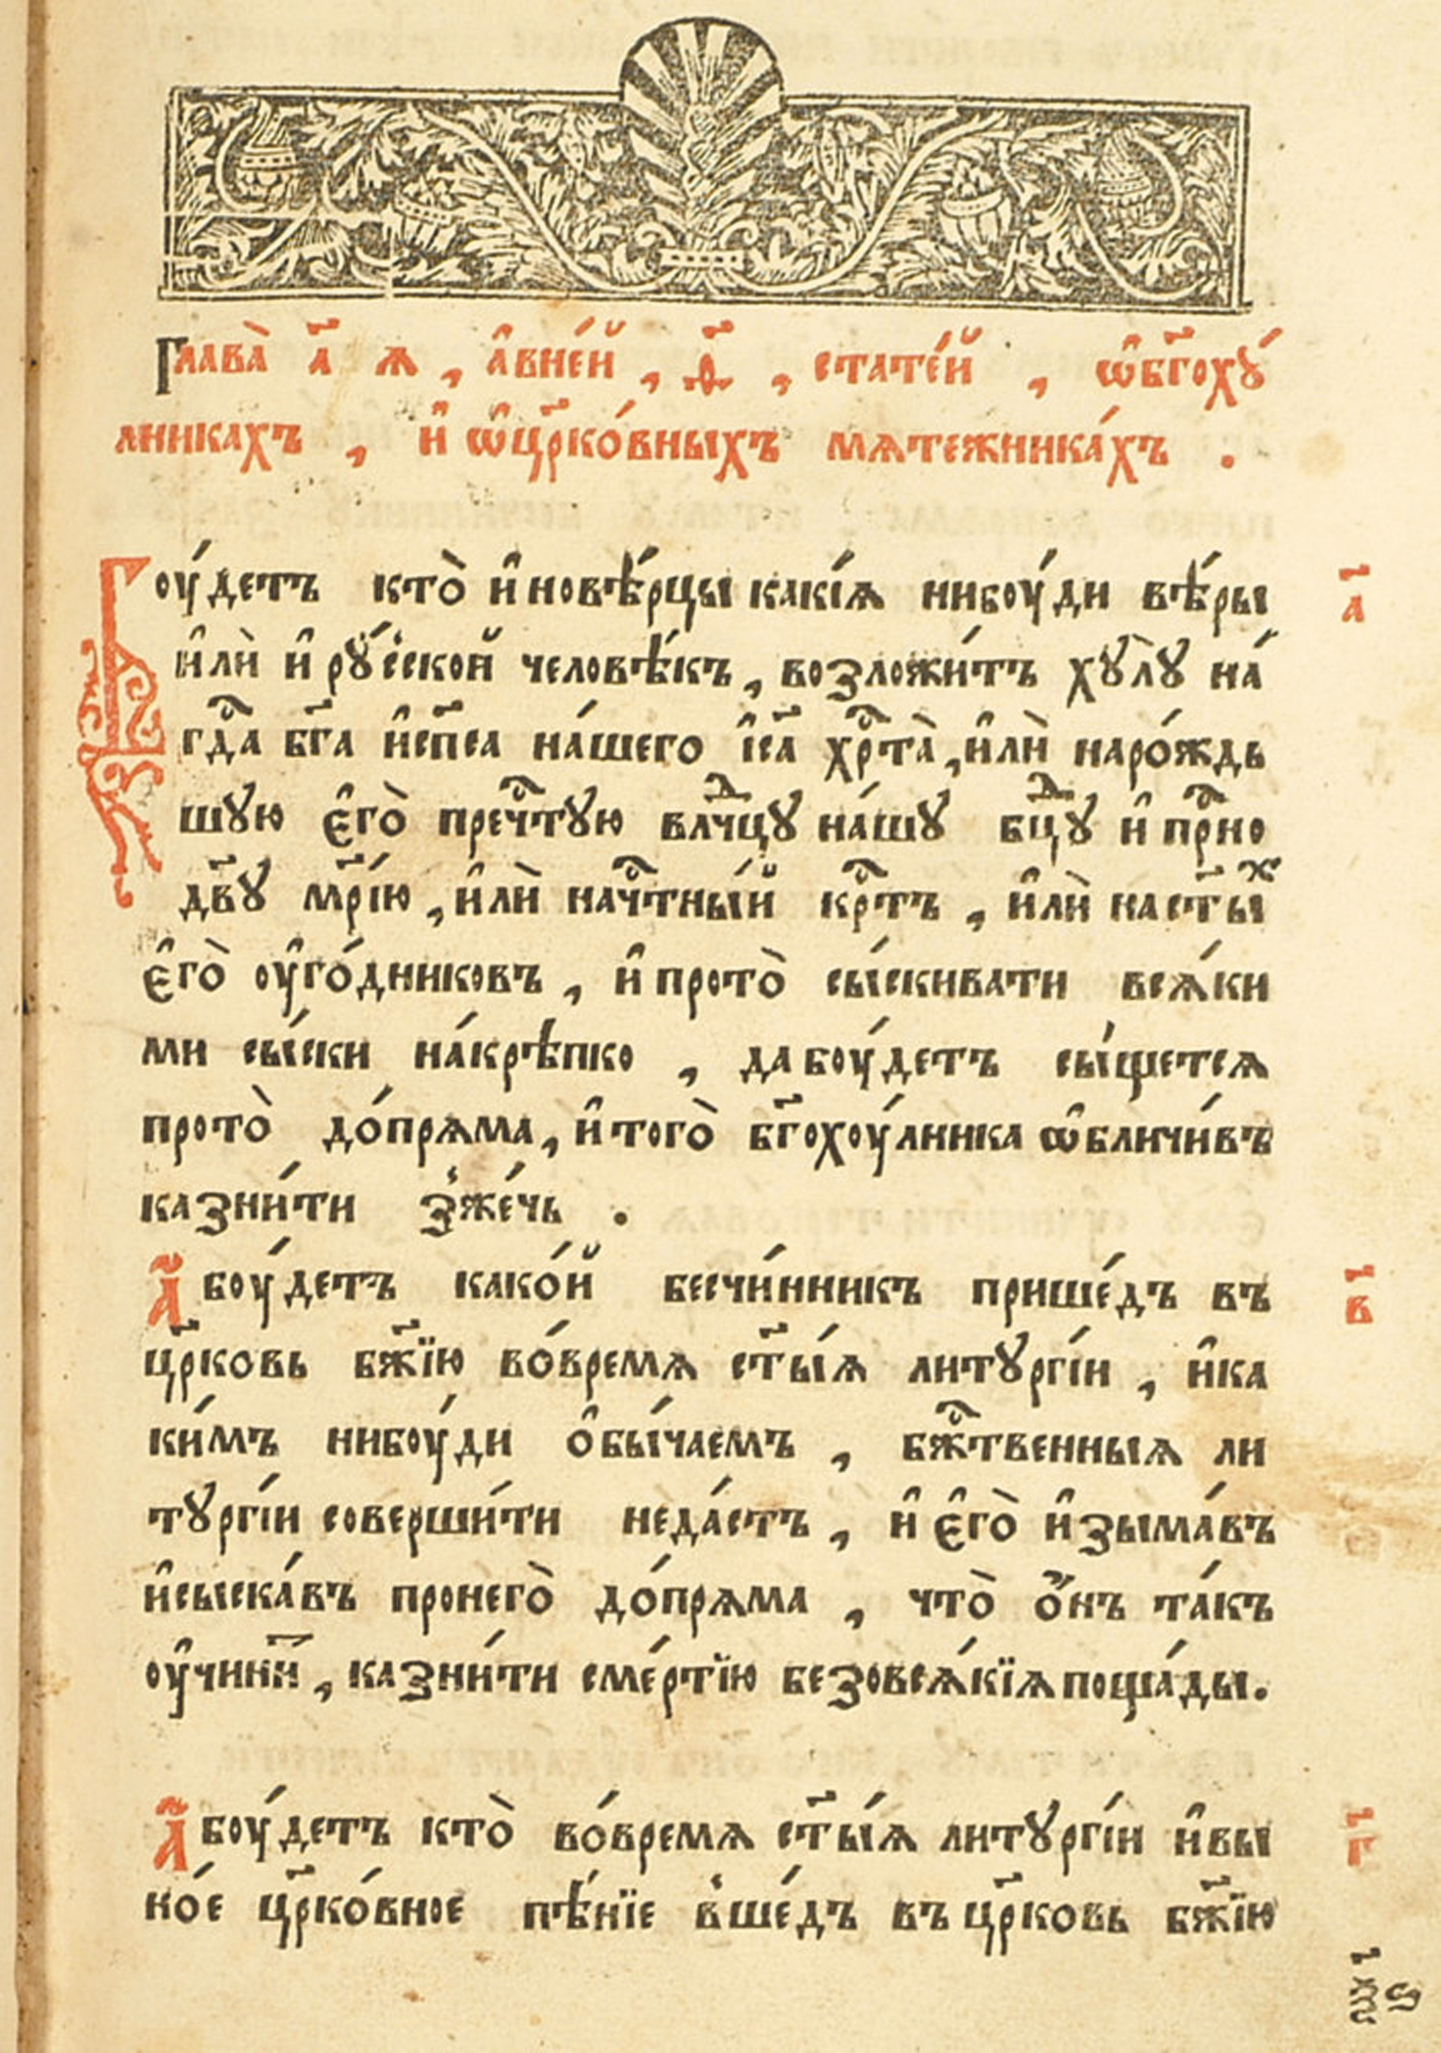 Глава̀ а҃ ѧ , а҆вне́й , ѳ҃ , стате́й , ѡ҆бг҃оху́
лникахъ , и҆ ѡ҆цр҃ко́вныхъ мѧтежника́хъ .
Боу́детъ кто̀ и҆новѣ́рцы какі́ѧ нибоу́ди вѣ́ры а҃
и҆лѝ и҆ рꙋ́сской человѣ́къ , возложи́тъ хꙋлꙋ̀ на́
гдⷭ҇а бг҃а и҆сп҃са на́шего і҆с҃а хрⷭ҇та̀ , и҆лѝ наро́ждь
шꙋю є҆го̀ пречⷭ҇тꙋю влⷣчцꙋ на́шꙋ бцⷣꙋ и҆ прⷭ҇но
дв҃ꙋ мр҃і́ю , и҆лѝ начⷭ҇тны́й крⷭ҇тъ , и҆лѝ наст҃ыⷯ
є҆го̀ оу҆го́дниковъ , и҆ прото̀ сы́скивати всѧ́ки
ми сы́ски на́крѣпко , да боу́детъ сы́щетсѧ
прото̀ до́прѧма , и҆ того̀ бг҃охоу́лника ѡ҆бличи́въ
казни́ти зже́чь .
А҆ боу́детъ како́й бесчи́нникъ прише́дъ въ в҃
цр҃ковь бж҃їю во́времѧ ст҃ы́ѧ литꙋргі́и , и҆ка
ки́мъ нибоу́ди ѻ҆бы́чаемъ , бжⷭ҇твенныѧ ли
тꙋргі́и соверши́ти неда́стъ , и҆ є҆го̀ и҆зыма́въ
и҆сыска́въ пронего̀ до́прѧма , что̀ ѻ҆́нъ та́къ
оу҆чини҃й , казни́ти сме́ртїю безовсѧ́кїѧ поща́ды .
А҆ боу́детъ кто̀ во́времѧ ст҃ы́ѧ литꙋргі́и и҆вы г҃
но́е цр҃ко́вное пѣ́нїе вше́дъ въ цр҃ковь бж҃їю
ѯ҃ѕ